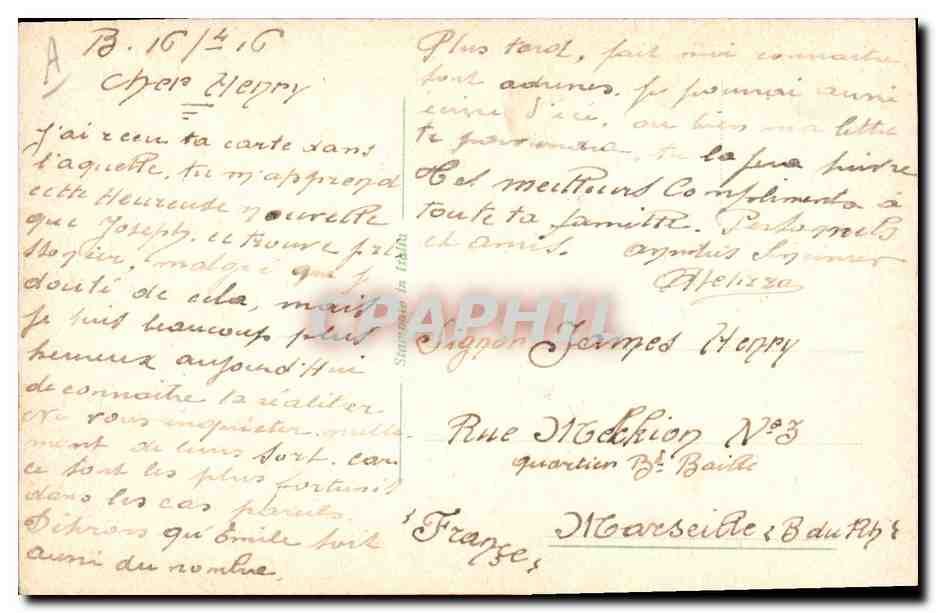 A
B. 16/4 16
Cher Henry
J'ai reçu ta carte dans
l'aquelle, tu m'apprend
cette Heureuse nouvelle
que Joseph, ce trouve pri
sonier, malgré que j'
douté de cela, mais
je suis beaucoup plus
heureux aujourd'Hui
de connaitre la réalité er
Ne vous inquieter nulle-
ment de leurs sort. car
ce sont les plus fortunés
dans les cas pareils.
Désirons qu'Emile soit
aussi du nombre.
Plus tard, fait moi connaitre
sont adresse. je pourrai aussi
ecrire d'ici, ou bien ma lettre
te parviendra, tu la fera suivre
Mes meilleurs Compliments à
toute ta famille. Personnels
et amis.
Stampato in Italia
CPAPHIL
Signor Jermes Henry
Rue Melchion No 3
quartier Bd Baille
Marseille (B du Rh)
(France)